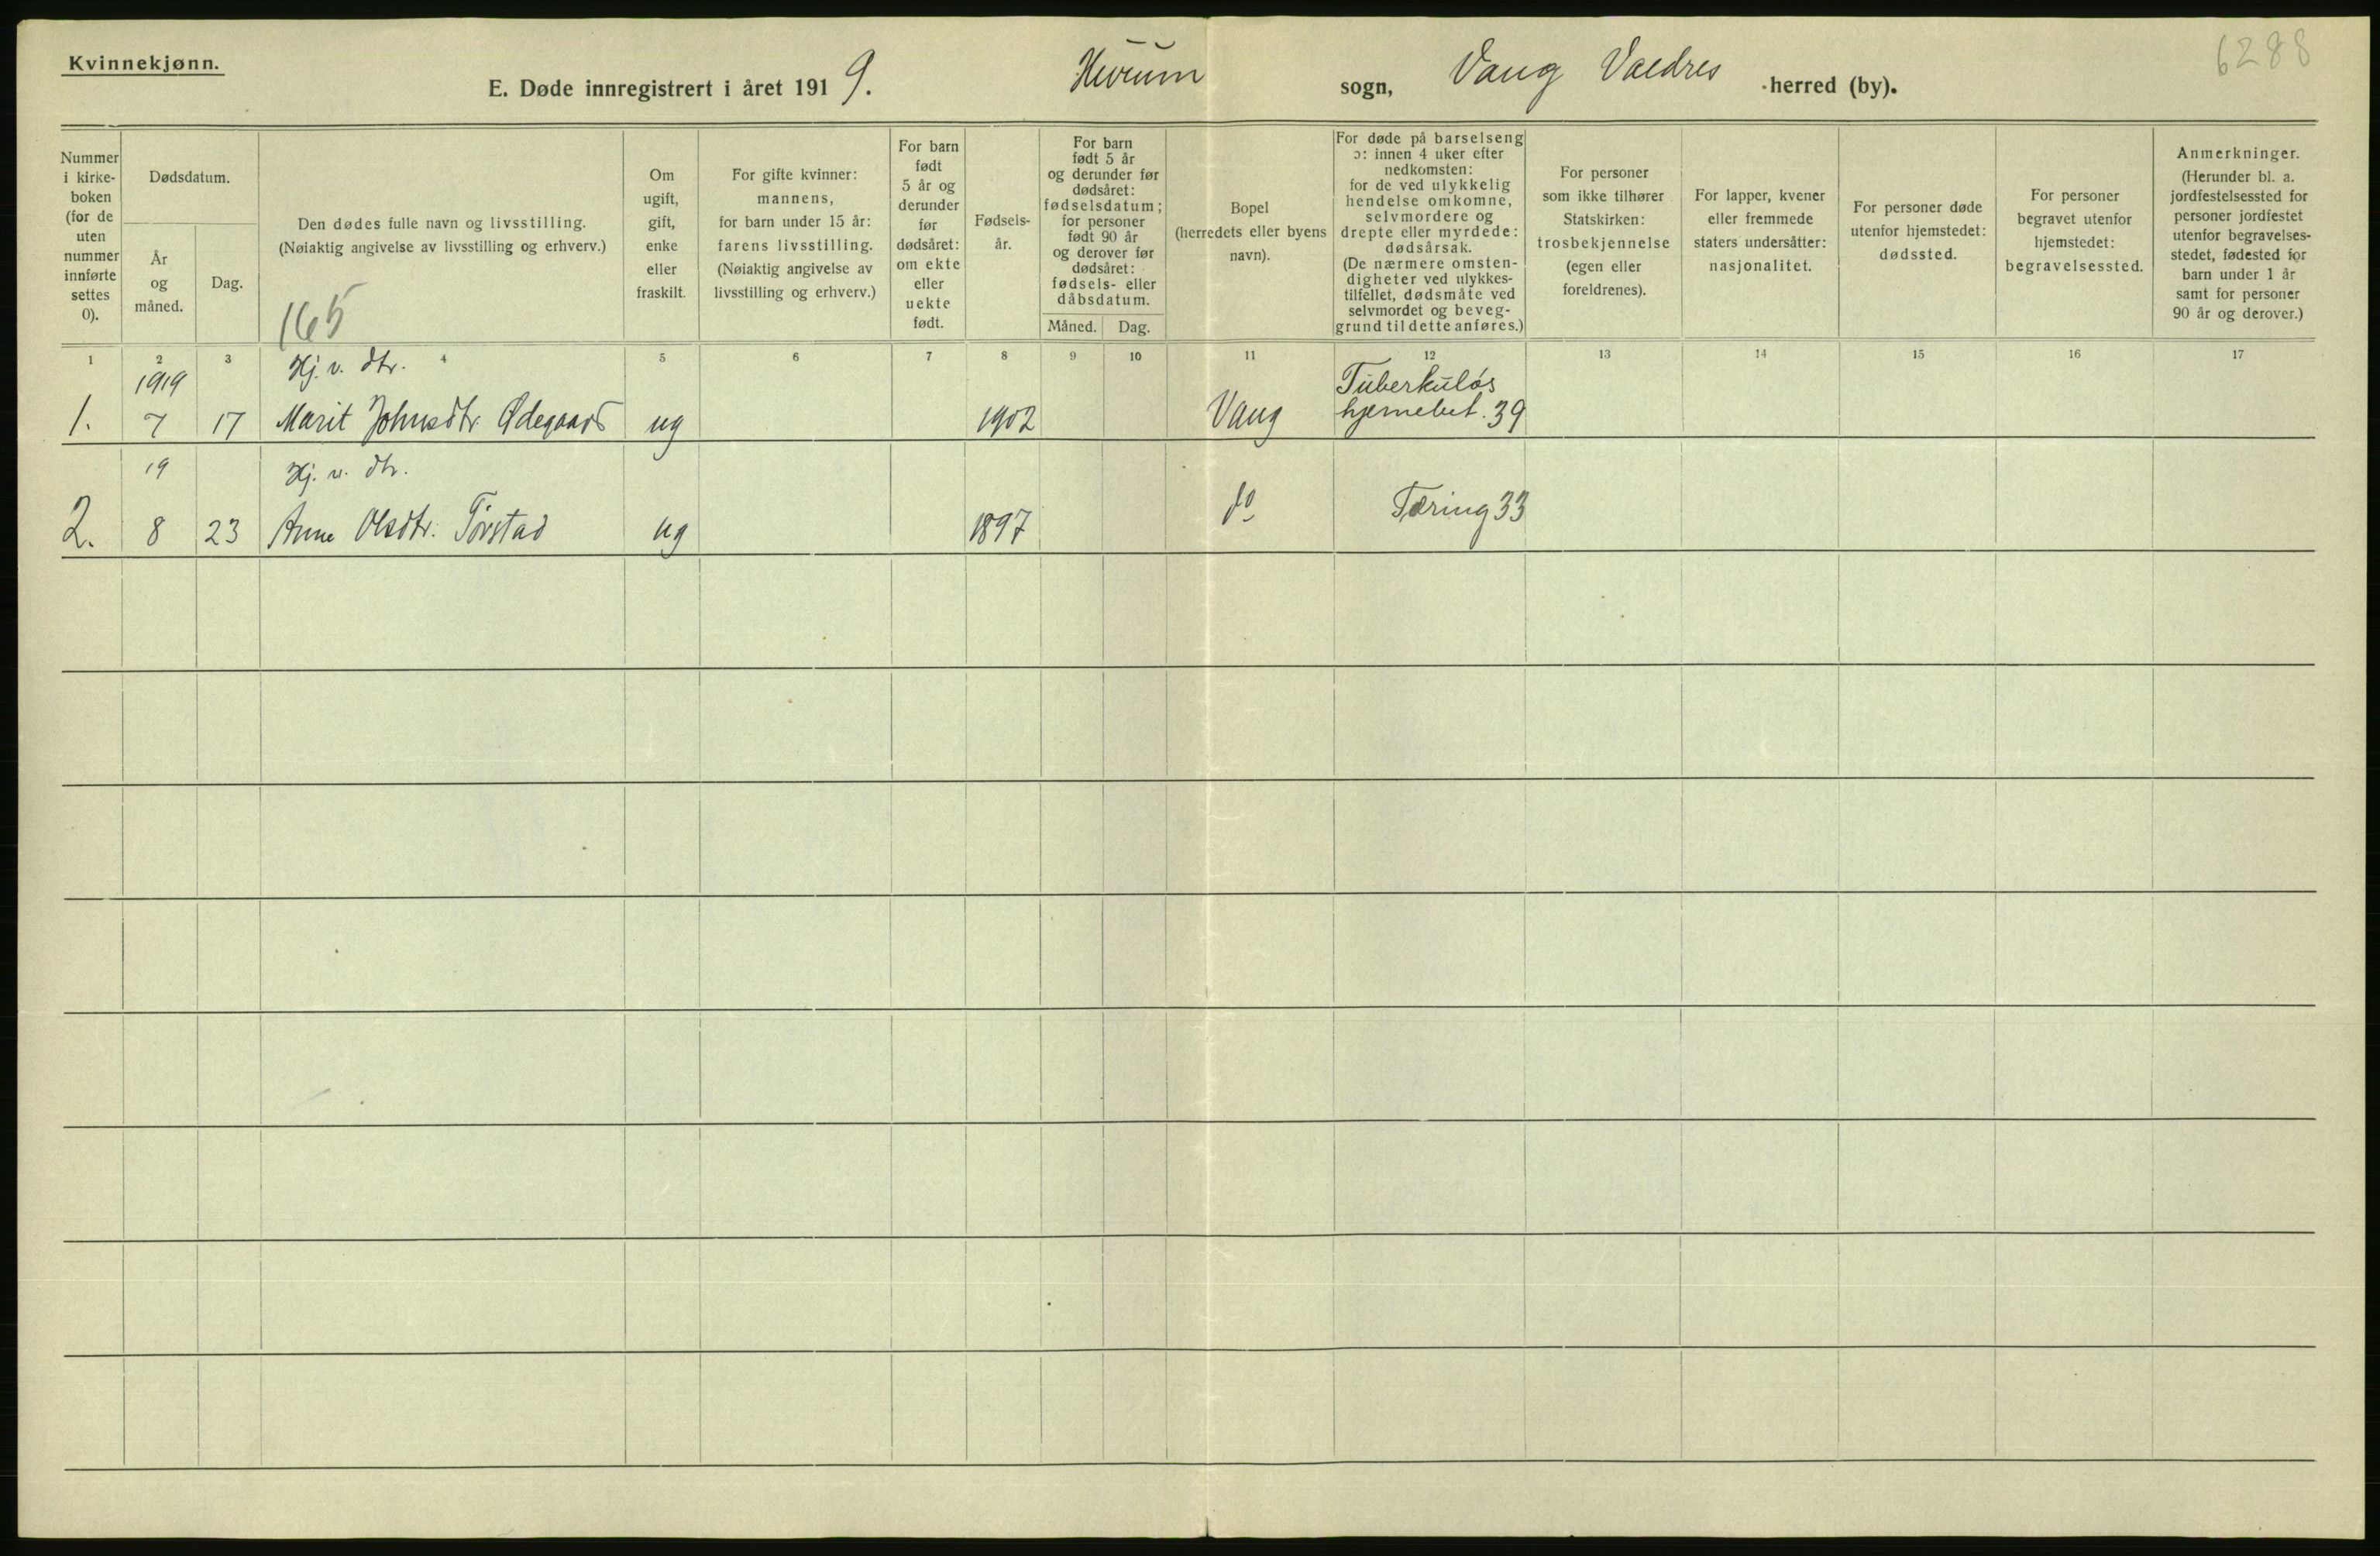 Kvinnekjønn.
E. Døde innregistrert i året 1919. Hurum sogn, Vang Valdres herred (by).
6288
Nummer i kirke-boken (for de uten nummer innførte settes 0).
Dødsdatum.
År og måned.
Dag.
Den dødes fulle navn og livsstilling.
(Nøiaktig angivelse av livsstilling og erhverv.)
165
Om ugift, gift, enke eller fraskilt.
For gifte kvinner: mannens, for barn under 15 år: farens livsstilling. (Nøiaktig angivelse av livsstilling og erhverv.)
For barn født 5 år og derunder før dødsåret: om ekte eller uekte født.
Fødsels-år.
For barn født 5 år og derunder før dødsåret: fødselsdatum; for personer født 90 år og derover før dødsåret: fødsels- eller dåbsdatum.
Måned. Dag.
Bopel (herredets eller byens navn).
For døde på barselseng ɔ: innen 4 uker efter nedkomsten: for de ved ulykkelig hendelse omkomne, selvmordere og drepte eller myrdede: dødsårsak. (De nærmere omsten-digheter ved ulykkes-tilfellet, dødsmåte ved selvmordet og beveg-grund til dette anføres.)
For personer som ikke tilhører Statskirken: trosbekjennelse (egen eller foreldrenes).
For lapper, kvener eller fremmede staters undersåtter: nasjonalitet.
For personer døde utenfor hjemstedet: dødssted.
For personer begravet utenfor hjemstedet: begravelsessted.
Anmerkninger. (Herunder bl. a. jordfestelsessted for personer jordfestet utenfor begravelses-stedet, fødested for barn under 1 år samt for personer 90 år og derover.)
1 2 3 4 5 6 7 8 9 10 11 12 13 14 15 16 17
1919 Hj. v. dtr. Tuberkuløs
1. 7 17 Marit Johnsdtr. Ødegaard ug 1902 Vang hjernebet. 39
19 Hj. v. dtr.
2. 8 23 Anne Olsdtr. Torstad ug 1897 do Tæring 33